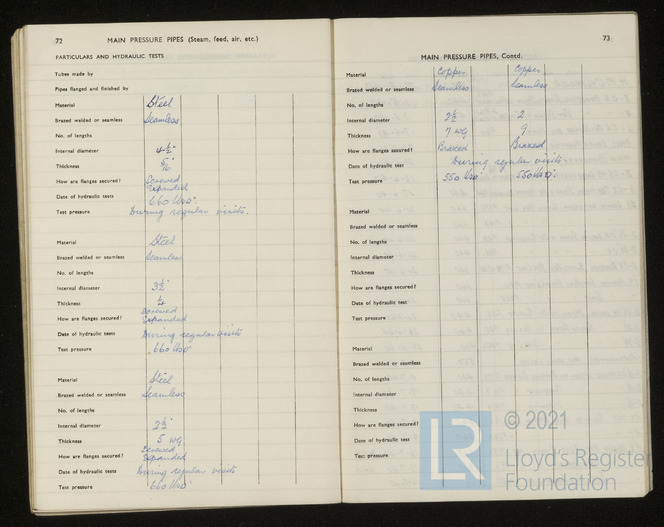 72
MAIN PRESSURE PIPES (Steam, feed, air, etc.)
PARTICULARS AND HYDRAULIC TESTS
Tubes made by
Pipes flanged and finished by
Material Steel
Brazed welded or seamless Seamless
No. of lengths
Internal diameter 4½"
Thickness 5/16"
How are flanges secured? Screwed Expanded
Date of hydraulic tests 660 lbs/□"
Test pressure During regular visits.
Material Steel
Brazed welded or seamless Seamless
No. of lengths
Internal diameter 3½"
Thickness ¼
How are flanges secured? Screwed Expanded
Date of hydraulic tests During regular visits
Test pressure 660 lbs/□"
Material Steel
Brazed welded or seamless Seamless
No. of lengths
Internal diameter 2½"
Thickness 5 WG
How are flanges secured? Screwed Expanded
Date of hydraulic tests During regular visits
Test pressure 660 lbs/□"
73
MAIN PRESSURE PIPES, Contd.
Material Copper Copper
Brazed welded or seamless Seamless Seamless
No. of lengths
Internal diameter 2½ 2
Thickness 7 WG 9
How are flanges secured? Brazed Brazed
Date of hydraulic test During regular visits
Test pressure 550 lbs/□" 550 lbs/□"
Material
Brazed welded or seamless
No. of lengths
Internal diameter
Thickness
How are flanges secured?
Date of hydraulic test
Test pressure
Material
Brazed welded or seamless
No. of lengths
Internal diameter
Thickness
How are flanges secured?
Date of hydraulic test
Test pressure
LR
© 2021
Lloyd's Register
Foundation